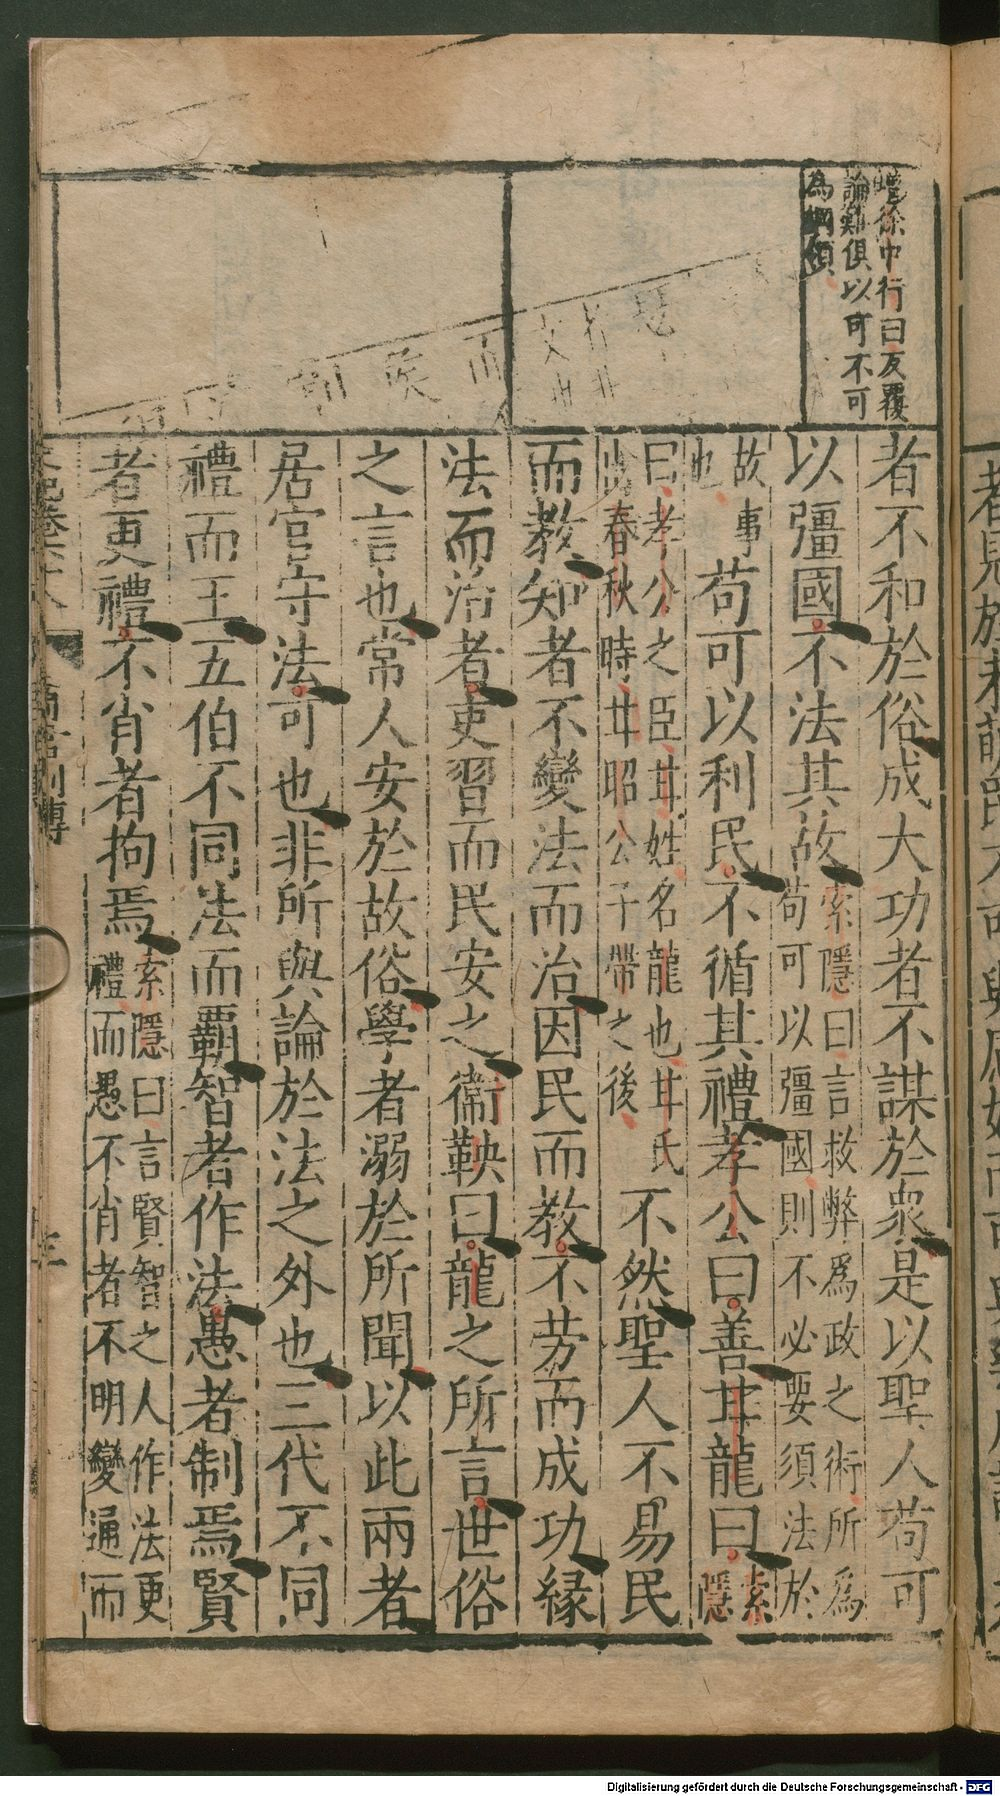 徐中行曰反覆
論難俱以可不可
為綱領
者不和於俗成大功者不謀於衆是以聖人苟可
以彊國不法其故
索隱曰言救弊爲政之術所爲
苟可以彊國則不必要須法於
故事
也
苟可以利民不循其禮孝公曰善甘龍曰
索
隱
曰孝公之臣甘姓名龍也甘氏
出春秋時甘昭公子帶之後
不然聖人不易民
而教知者不變法而治因民而教不劳而成功緣
法而治者吏習而民安之衞鞅曰龍之所言世俗
之言也常人安於故俗學者溺於所聞以此兩者
居官守法可也非所與論於法之外也三代不同
禮而王五伯不同法而覇智者作法愚者制焉賢
者更禮不肖者拘焉
索隱曰言賢智之人作法更
禮而愚不肖者不明變通而
商君列傳
Digitalisierung gefördert durch die Deutsche Forschungsgemeinschaft - DFG